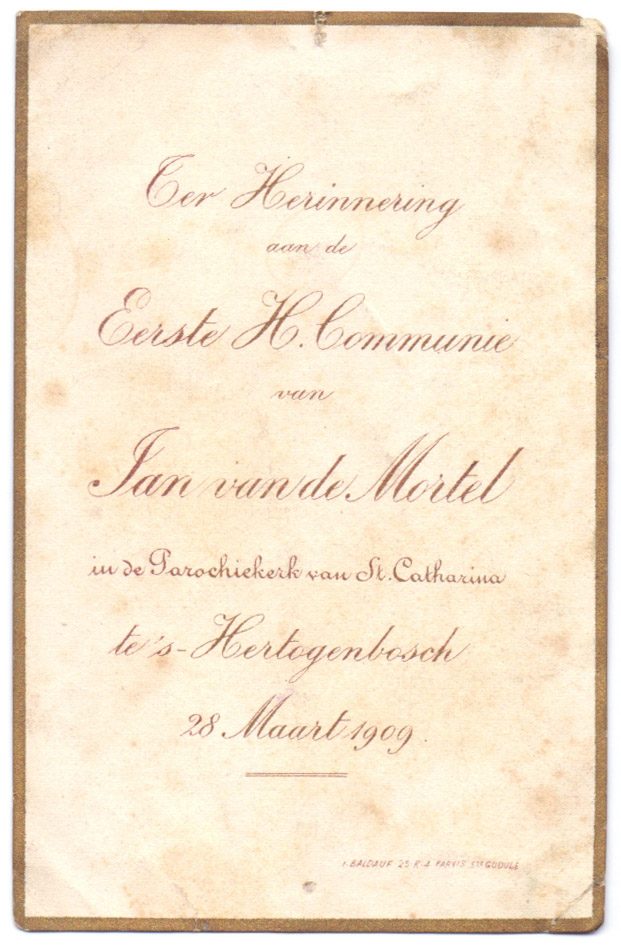 Ter Herinnering
aan de
Eerste H. Communie
van
Jan van de Mortel
in de Parochiekerk van St. Catharina
te 's-Hertogenbosch
28 Maart 1909.
BALDAUF 25 R. PARVIS STE GUDULE